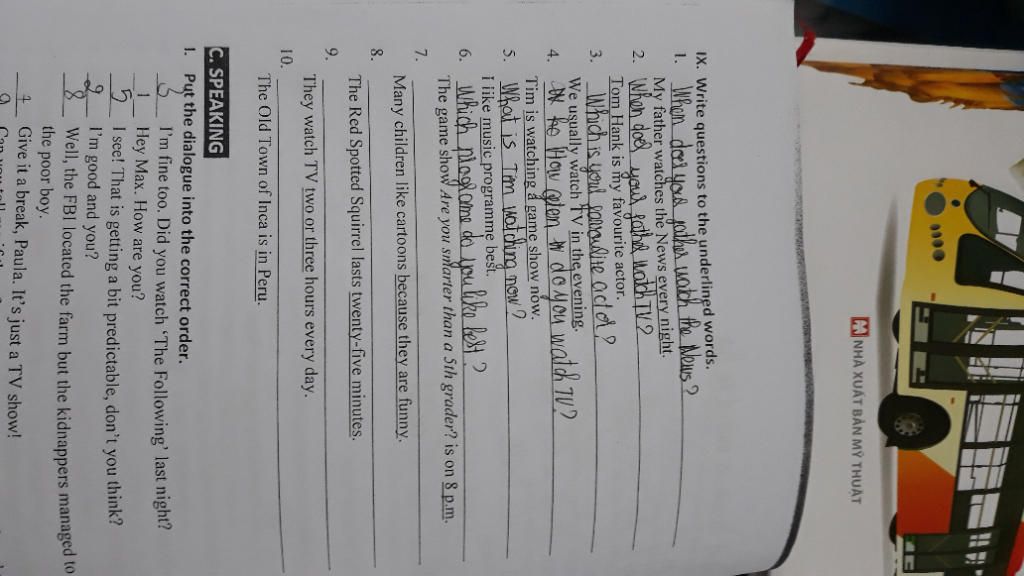 IX. Write questions to the underlined words.
1. When does your father watch the News?
My father watches the News every night.
2. When does your father watch TV?
Tom Hank is my favourite actor.
3. Which is your favourite actor?
We usually watch TV in the evening.
4. How often do you watch TV?
Tim is watching a game show now.
5. What is Tom watching now?
I like music programme best.
6. Which programe do you like best?
The game show Are you smarter than a 5th grader? is on 8 p.m.
7.
Many children like cartoons because they are funny.
8.
The Red Spotted Squirrel lasts twenty-five minutes.
9.
They watch TV two or three hours every day.
10.
The Old Town of Inca is in Peru.
C. SPEAKING
I. Put the dialogue into the correct order.
3 I'm fine too. Did you watch 'The Following' last night?
1 Hey Max. How are you?
5 I see! That is getting a bit predictable, don't you think?
2 I'm good and you?
8 Well, the FBI located the farm but the kidnappers managed to
the poor boy.
7 Give it a break, Paula. It's just a TV show!
9
NHÀ XUẤT BẢN MỸ THUẬT